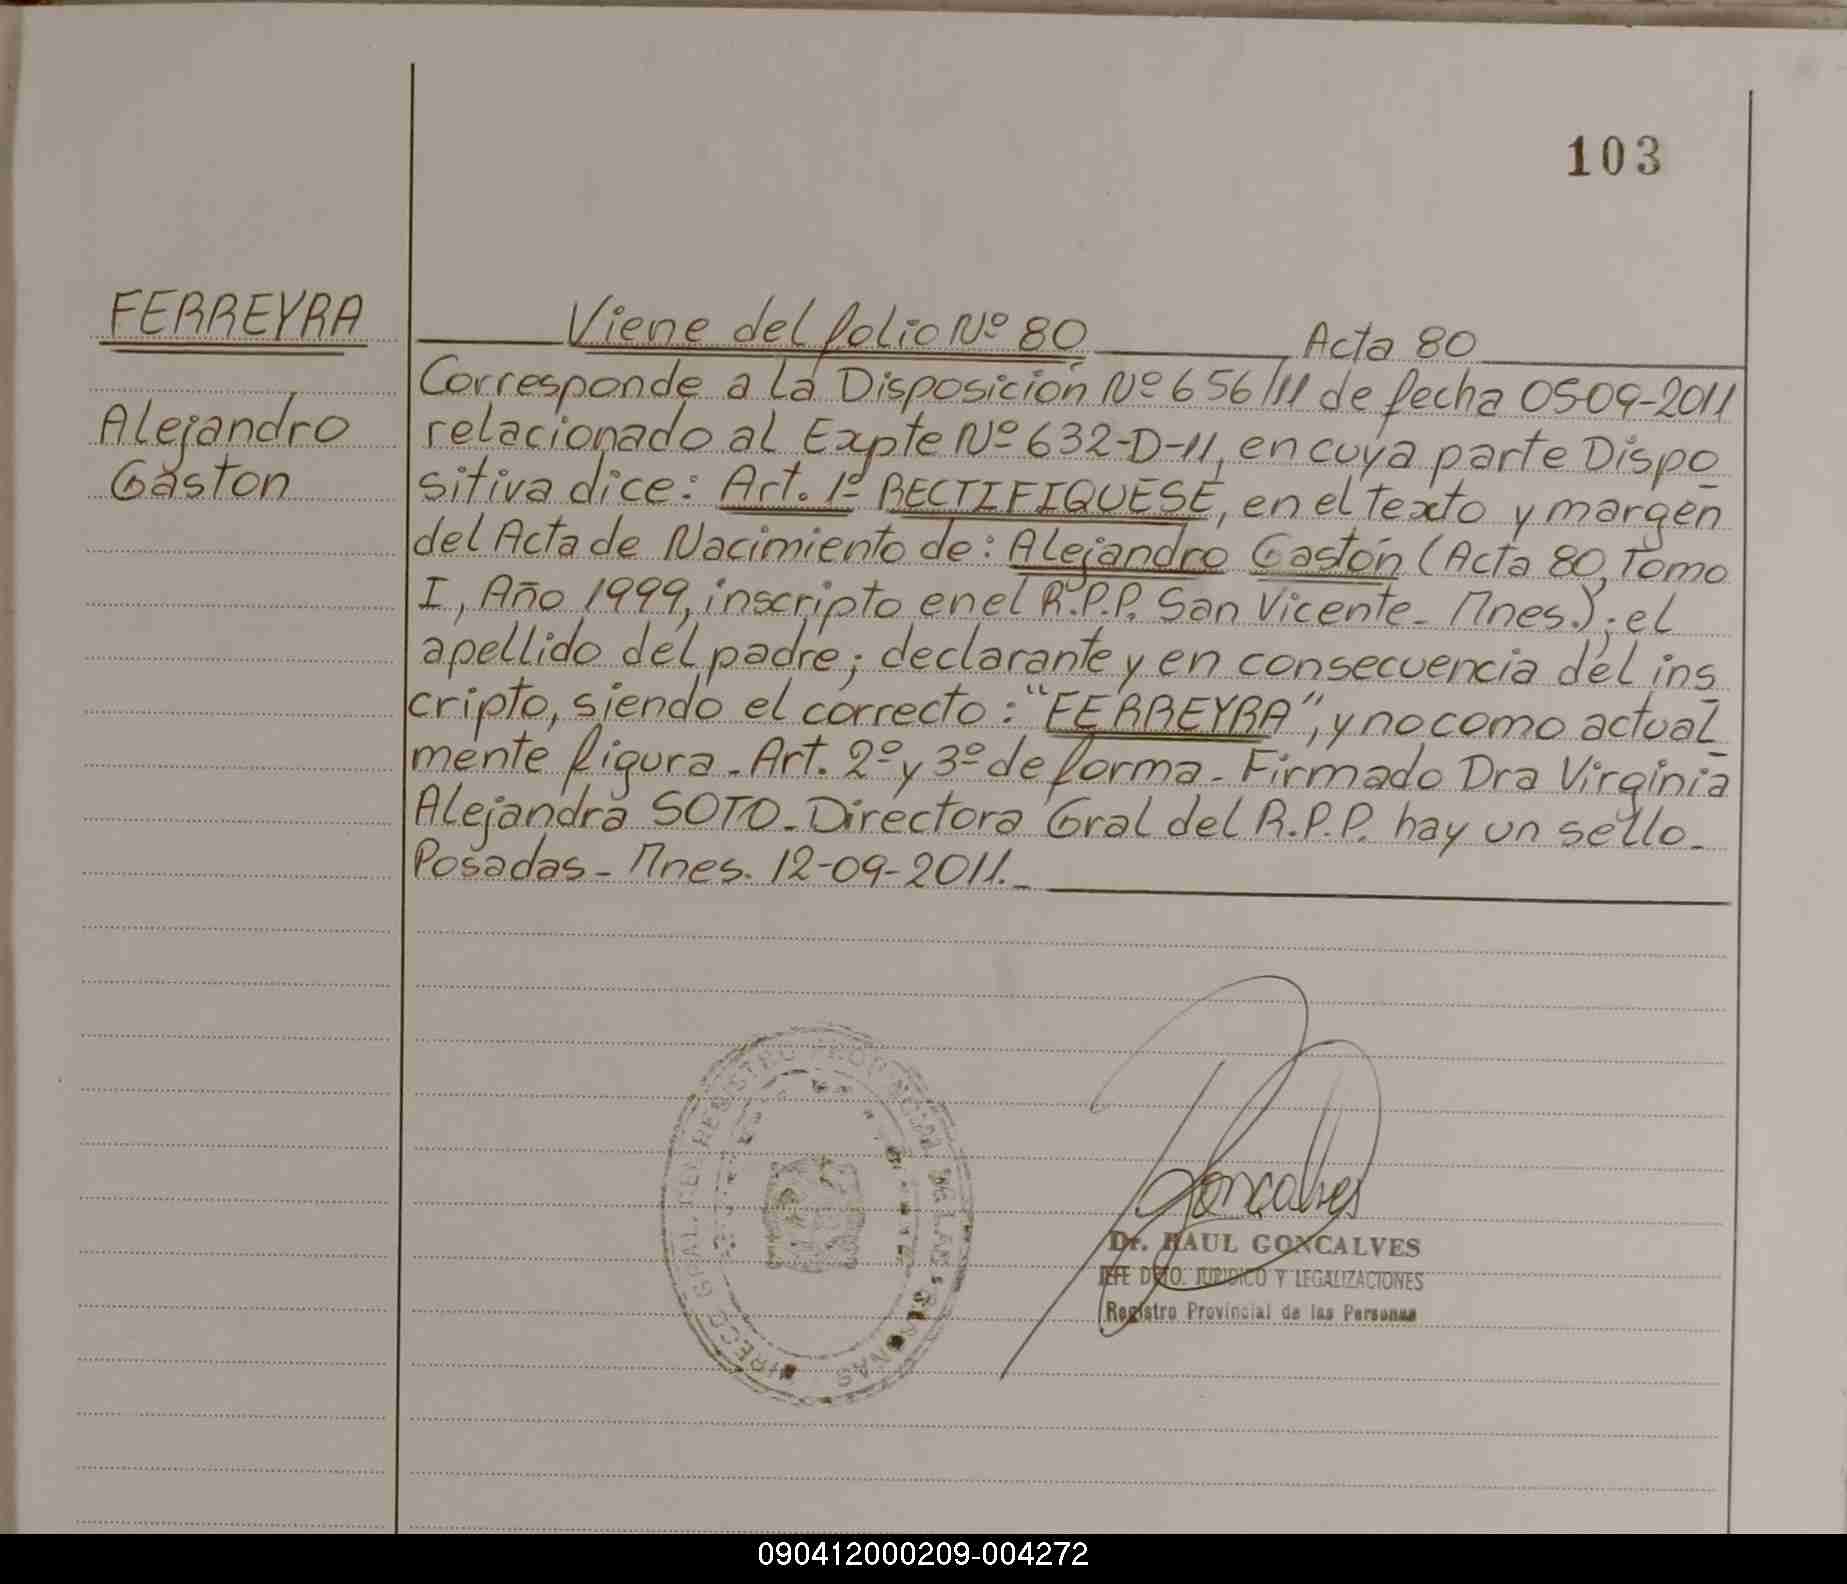 103
FERREYRA
Alejandro
Gaston
Viene del folio Nº 80 Acta 80
Corresponde a la Disposición Nº 656/11 de fecha 05-09-2011
relacionado al Expte Nº 632-D-11, en cuya parte Dispo
sitiva dice: Art. 1º RECTIFIQUESE, en el texto y margen
del Acta de Nacimiento de: Alejandro Gastón (Acta 80, Tomo
I, Año 1999, inscripto en el R.P.P. San Vicente - Mnes.); el
apellido del padre; declarante y en consecuencia del ins
cripto, siendo el correcto: "FERREYRA", y no como actual
mente figura. Art. 2º y 3º de forma - Firmado Dra Virginia
Alejandra SOTO - Directora Gral del R.P.P. hay un sello -
Posadas - Mnes. 12-09-2011.-
DIRECC GRAL DEL REGISTRO PROVINCIAL DE LAS PERSONAS
Goncalves
Dr. RAUL GONCALVES
JEFE DPTO. JURIDICO Y LEGALIZACIONES
Registro Provincial de las Personas
090412000209-004272